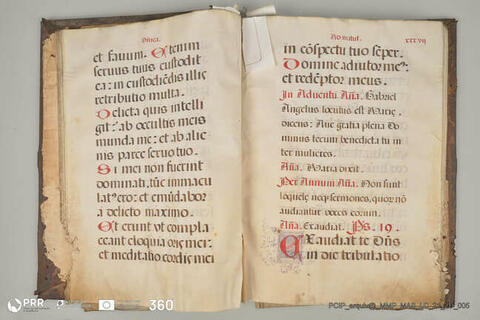 Dñica.
et fauum. Etenim
seruus tuus custodit
ea: in custodiẽdis illis
retributio multa.
Delicta quis intelli
git: ab occultis meis
munda me: et ab alie
nis parce seruo tuo.
Si mei non fuerint
dominati, tũc immacu
lat⁹ero: et emũdabor
a delicto maximo.
Et erunt vt compla
ceant eloquia oris mei:
et meditatio cordis mei
Ad matut. xxxvij
in cõspectu tuo sẽper.
Domine adiutor me⁹:
et redẽptor meus.
In Aduentu Aña. Gabriel
Angelus locutus est Marie,
dicens: Aue gratia plena Do
minus tecum benedicta tu in
ter mulieres.
Aña. Maria dixit.
Per Annum Aña. Non sunt
loquele neq; sermones, quor̃ nõ
audiantur voces eorum.
Aña. Exaudiat. Ps. 19.
Exaudiat te Dñs
in die tribulatio
PRR
360